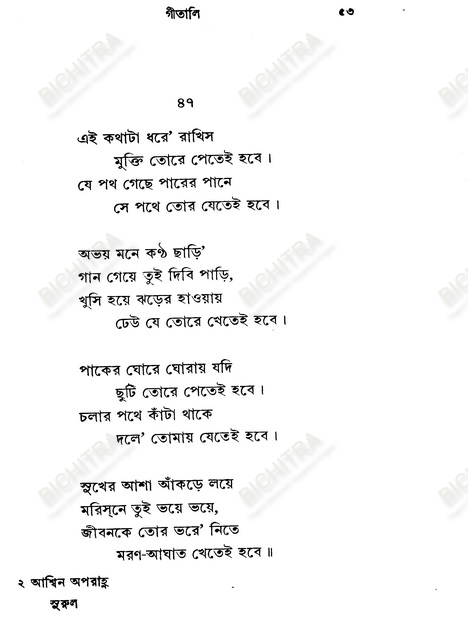 গীতালি ৫৩
৪৭
এই কথাটা ধরে' রাখিস
মুক্তি তোরে পেতেই হবে।
যে পথ গেছে পারের পানে
সে পথে তোর যেতেই হবে।
অভয় মনে কণ্ঠ ছাড়ি'
গান গেয়ে তুই দিবি পাড়ি,
খুসি হয়ে ঝড়ের হাওয়ায়
ঢেউ যে তোরে খেতেই হবে।
পাকের ঘোরে ঘোরায় যদি
ছুটি তোরে পেতেই হবে।
চলার পথে কাঁটা থাকে
দলে' তোমায় যেতেই হবে।
সুখের আশা আঁকড়ে লয়ে
মরিস্‌নে তুই ভয়ে ভয়ে,
জীবনকে তোর ভরে' নিতে
মরণ-আঘাত খেতেই হবে॥
২ আশ্বিন অপরাহ্ণ
সুরুল
BICHITRA
BICHITRA
BICHITRA
BICHITRA
BICHITRA
BICHITRA